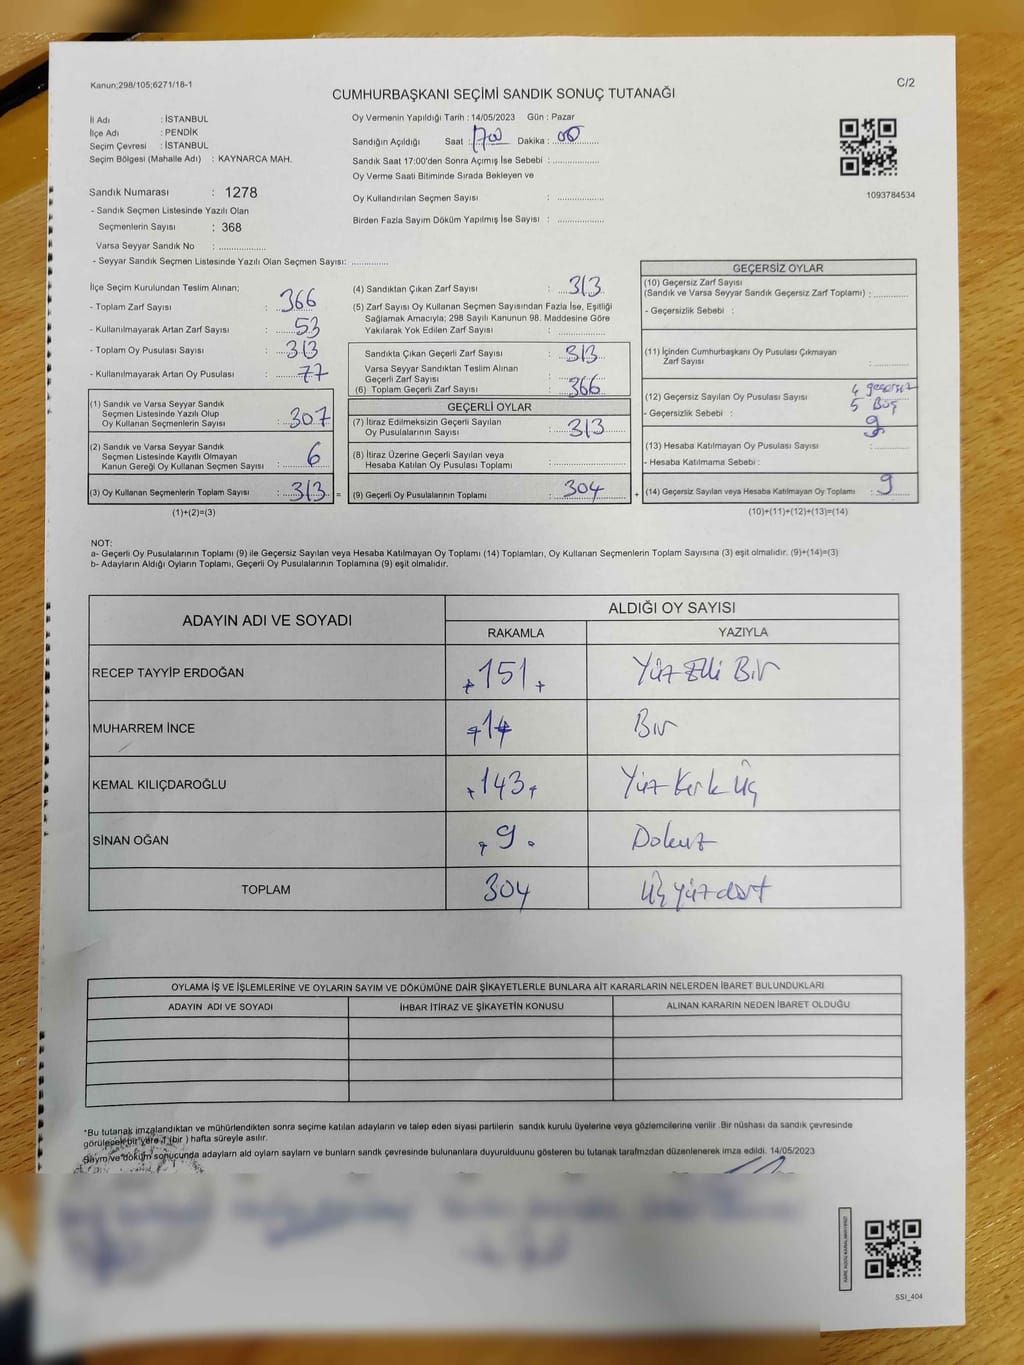 Kanun;298/105;6271/18-1
C/2
CUMHURBAŞKANI SEÇİMİ SANDIK SONUÇ TUTANAĞI
İl Adı : İSTANBUL
İlçe Adı : PENDİK
Seçim Çevresi : İSTANBUL
Seçim Bölgesi (Mahalle Adı) : KAYNARCA MAH.
Sandık Numarası : 1278
- Sandık Seçmen Listesinde Yazılı Olan
Seçmenlerin Sayısı : 368
Varsa Seyyar Sandık No : ..................
- Seyyar Sandık Seçmen Listesinde Yazılı Olan Seçmen Sayısı: ..............
Oy Vermenin Yapıldığı Tarih : 14/05/2023 Gün : Pazar
Sandığın Açıldığı Saat : 1700 Dakika : 00
Sandık Saat 17:00'den Sonra Açımış İse Sebebi : ..................
Oy Verme Saati Bitiminde Sırada Bekleyen ve
Oy Kullandırılan Seçmen Sayısı : ..................
Birden Fazla Sayım Döküm Yapılmış İse Sayısı : ..................
1093784534
İlçe Seçim Kurulundan Teslim Alınan;
- Toplam Zarf Sayısı : 366
- Kullanılmayarak Artan Zarf Sayısı : 53
- Toplam Oy Pusulası Sayısı : 313
- Kullanılmayarak Artan Oy Pusulası : 77
(1) Sandık ve Varsa Seyyar Sandık
Seçmen Listesinde Yazılı Olup
Oy Kullanan Seçmenlerin Sayısı : 307
(2) Sandık ve Varsa Seyyar Sandık
Seçmen Listesinde Kayıtlı Olmayan
Kanun Gereği Oy Kullanan Seçmen Sayısı : 6
(3) Oy Kullanan Seçmenlerin Toplam Sayısı : 313 =
(1)+(2)=(3)
(4) Sandıktan Çıkan Zarf Sayısı : 313
(5) Zarf Sayısı Oy Kullanan Seçmen Sayısından Fazla İse, Eşitliği
Sağlamak Amacıyla; 298 Sayılı Kanunun 98. Maddesine Göre
Yakılarak Yok Edilen Zarf Sayısı : ..................
Sandıkta Çıkan Geçerli Zarf Sayısı : 313
Varsa Seyyar Sandıktan Teslim Alınan
Geçerli Zarf Sayısı
(6) Toplam Geçerli Zarf Sayısı : 366
GEÇERLİ OYLAR
(7) İtiraz Edilmeksizin Geçerli Sayılan
Oy Pusulalarının Sayısı : 313
(8) İtiraz Üzerine Geçerli Sayılan veya
Hesaba Katılan Oy Pusulası Toplamı : ..................
(9) Geçerli Oy Pusulalarının Toplamı : 304 +
GEÇERSİZ OYLAR
(10) Geçersiz Zarf Sayısı
(Sandık ve Varsa Seyyar Sandık Geçersiz Zarf Toplamı) : ..........
- Geçersizlik Sebebi :
(11) İçinden Cumhurbaşkanı Oy Pusulası Çıkmayan
Zarf Sayısı : ..........
(12) Geçersiz Sayılan Oy Pusulası Sayısı 4 geçersiz
- Geçersizlik Sebebi : 5 Boş
9
(13) Hesaba Katılmayan Oy Pusulası Sayısı : ..........
- Hesaba Katılmama Sebebi :
(14) Geçersiz Sayılan veya Hesaba Katılmayan Oy Toplamı : 9
(10)+(11)+(12)+(13)=(14)
NOT:
a- Geçerli Oy Pusulalarının Toplamı (9) ile Geçersiz Sayılan veya Hesaba Katılmayan Oy Toplamı (14) Toplamları, Oy Kullanan Seçmenlerin Toplam Sayısına (3) eşit olmalıdır. (9)+(14)=(3)
b- Adayların Aldığı Oyların Toplamı, Geçerli Oy Pusulalarının Toplamına (9) eşit olmalıdır.
ADAYIN ADI VE SOYADI
ALDIĞI OY SAYISI
RAKAMLA YAZIYLA
RECEP TAYYİP ERDOĞAN +151+ Yüz Elli Bir
MUHARREM İNCE +1+ Bir
KEMAL KILIÇDAROĞLU +143+ Yüz Kırk Üç
SİNAN OĞAN +9+ Dokuz
TOPLAM 304 Üç yüz dört
OYLAMA İŞ VE İŞLEMLERİNE VE OYLARIN SAYIM VE DÖKÜMÜNE DAİR ŞİKAYETLERLE BUNLARA AİT KARARLARIN NELERDEN İBARET BULUNDUKLARI
ADAYIN ADI VE SOYADI İHBAR İTİRAZ VE ŞİKAYETİN KONUSU ALINAN KARARIN NEDEN İBARET OLDUĞU
*Bu tutanak imzalandıktan ve mühürlendikten sonra seçime katılan adayların ve talep eden siyasi partilerin sandık kurulu üyelerine veya gözlemcilerine verilir .Bir nüshası da sandık çevresinde
görülecek bir yere 1 (bir ) hafta süreyle asılır.
Sayım ve döküm sonucunda adayların ald oyların saylarn ve bunların sandk çevresinde bulunanlara duyurulduunu gösteren bu tutanak tarafmzdan düzenlenerek imza edildi. 14/05/2023
SSI_404